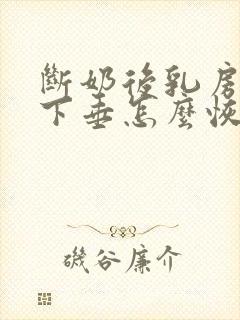 斷奶後乳房
下垂怎麼恢
磯谷廉介